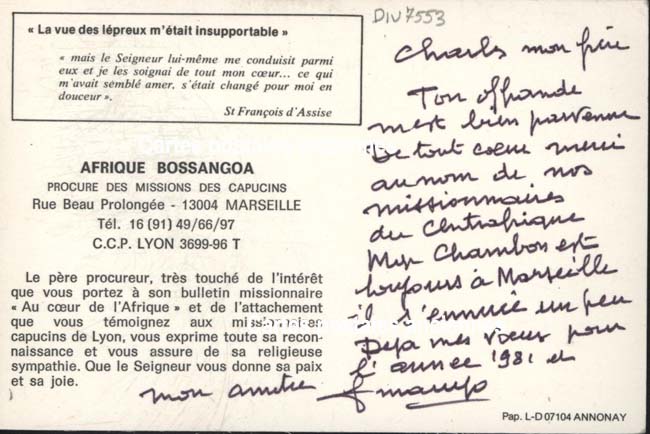 DIV7553
« La vue des lépreux m'était insupportable »
« mais le Seigneur lui-même me conduisit parmi
eux et je les soignai de tout mon cœur... ce qui
m'avait semblé amer, s'était changé pour moi en
douceur ».
St François d'Assise
AFRIQUE BOSSANGOA
PROCURE DES MISSIONS DES CAPUCINS
Rue Beau Prolongée - 13004 MARSEILLE
Tél. 16 (91) 49/66/97
C.C.P. LYON 3699-96 T
Le père procureur, très touché de l'intérêt
que vous portez à son bulletin missionnaire
« Au cœur de l'Afrique » et de l'attachement
que vous témoignez aux missions des
capucins de Lyon, vous exprime toute sa recon-
naissance et vous assure de sa religieuse
sympathie. Que le Seigneur vous donne sa paix
et sa joie.
Charles mon frère
Ton offrande
m'est bien parvenue
De tout cœur merci
au nom de nos
missionnaires
du Centrafrique
Mgr Chambon est
toujours à Marseille
il s'ennuie un peu
Déjà mes vœux pour
l'année 1981 et
mon amitié
Pap. L-D 07104 ANNONAY